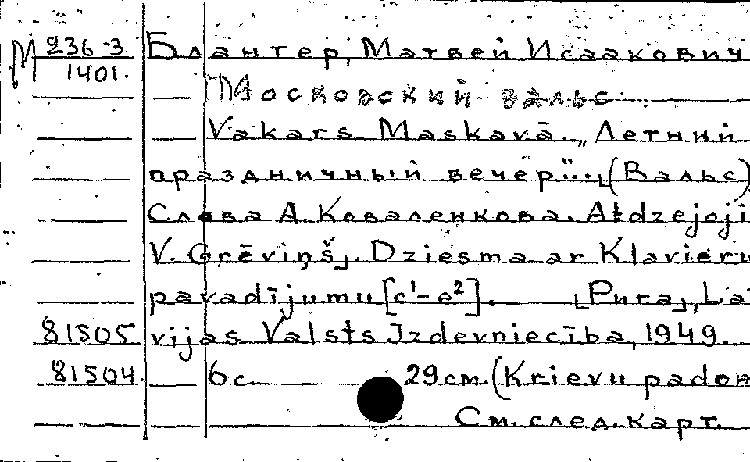 М 236-3 Блантер, Матвей Исаакович
1401.
Московский вальс.
Vakars Maskavā. „Летний
праздничный вечер"... (Вальс)
Слова А. Коваленкова. Atdzejoji
V. Grēviņš]. Dziesma ar Klavieru
pavadījumu [c¹-e²]. — [Риға], Lat
81505 vijas Valsts Izdevniecība, 1949.
81504. 6 с. 29 см. (Krievu padon
См. след. карт.